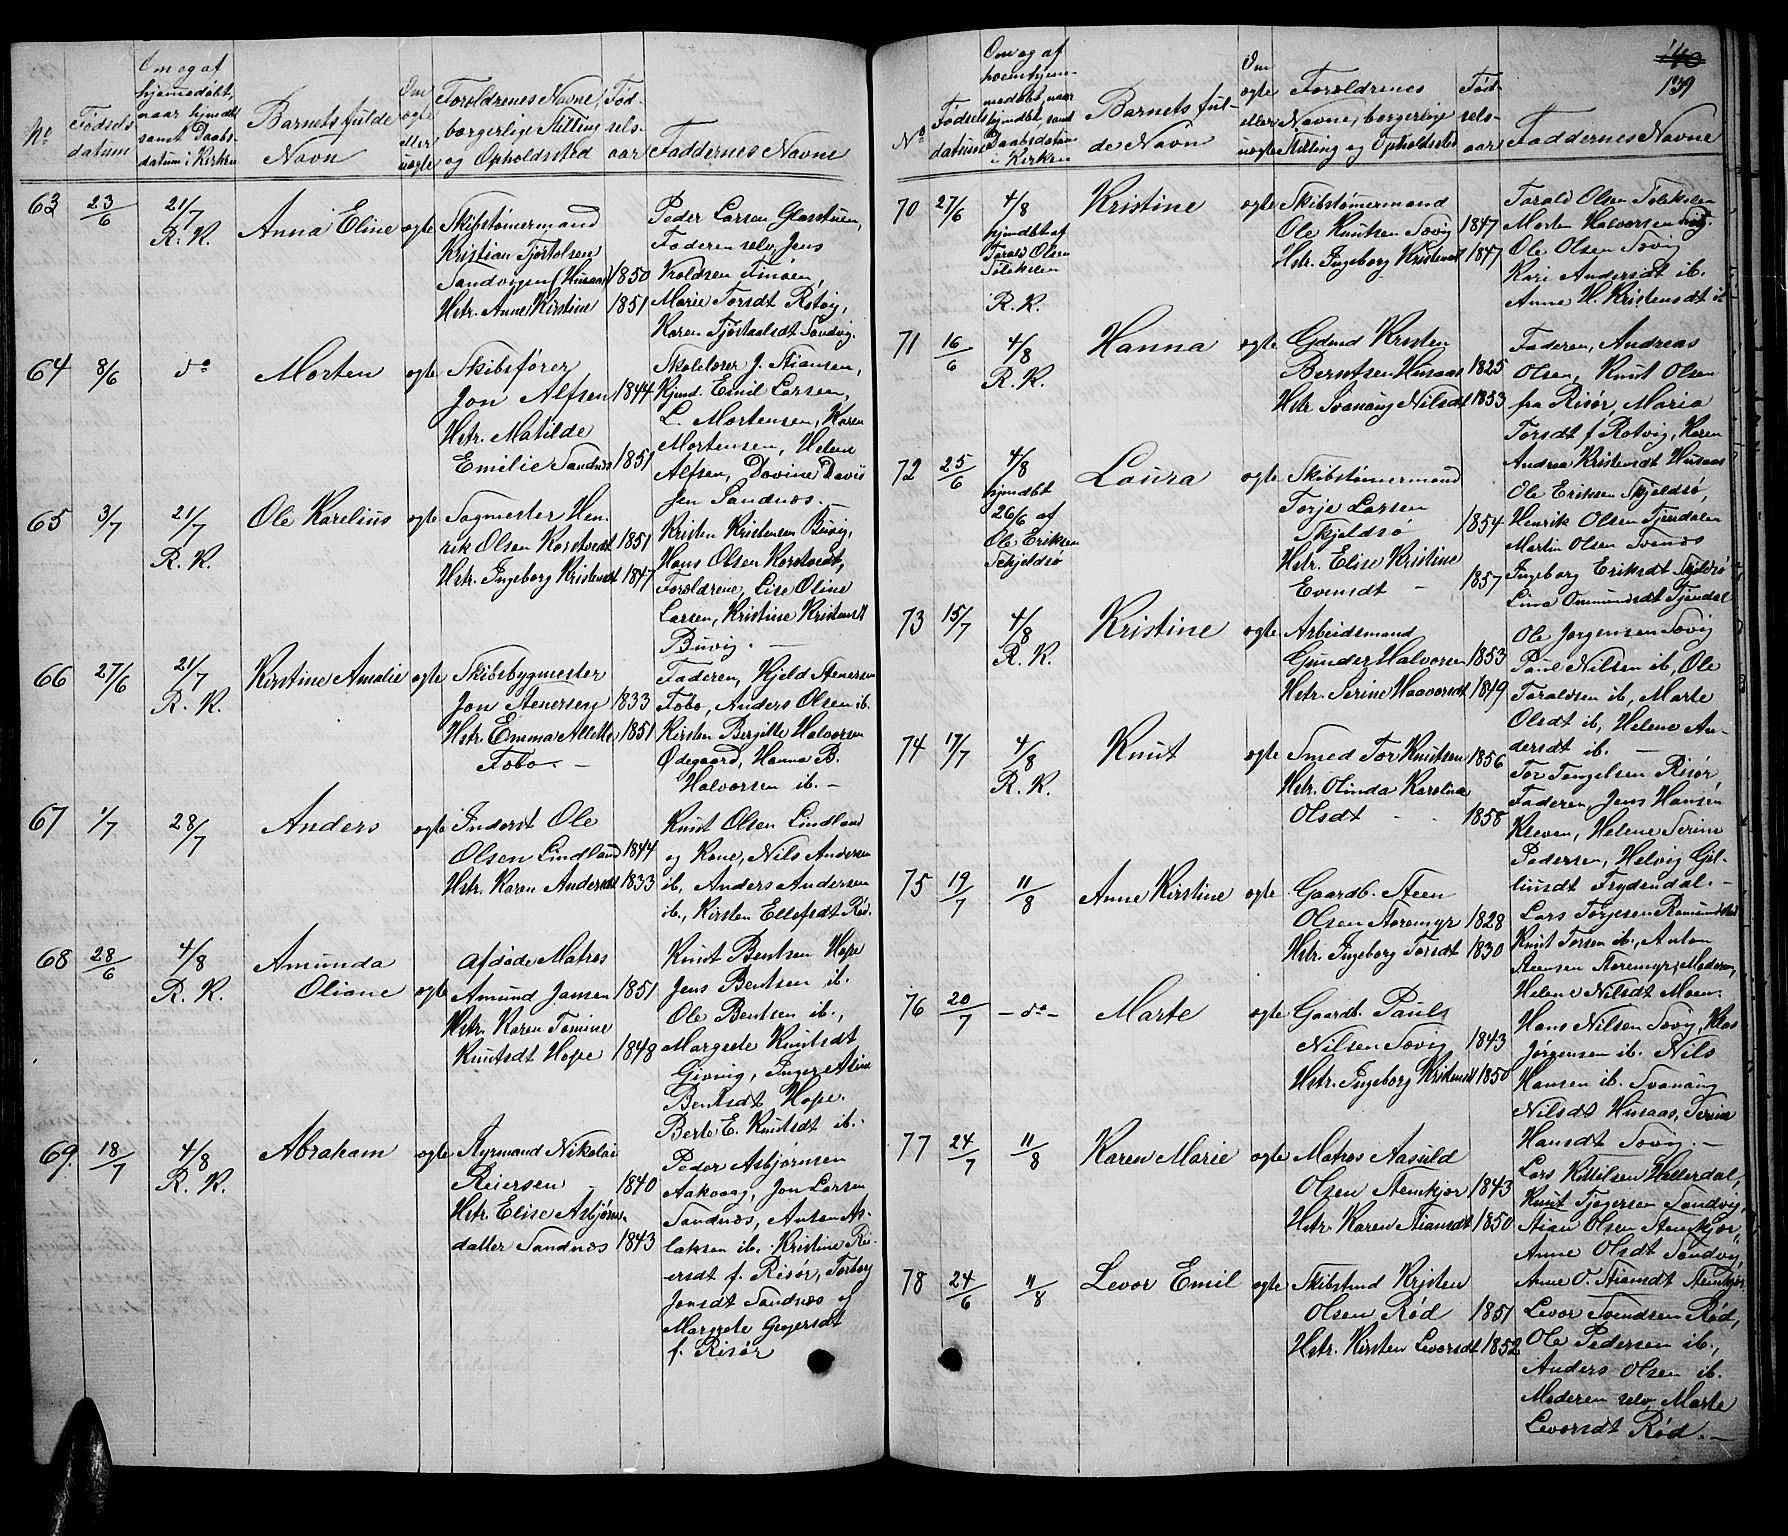 No
Fødsels
datum
Om og af
hjemmedøbt,
naar hjemdt
samt Daabs
datum i Kirken
Barnets fulde
Navn
Om
ægte
eller
uægte
Forældrenes Navne,
borgerlige Stilling
og Opholdssted
Fød-
sels-
aar
Faddernes Navne
63
23/6
21/7
R. K.
Anna Eline
ægte
Skibstømermand
Kristian
Sandvigen (Husaas)
1850
Hstr. Anne Kirstine
1851
Peder Larsen
Faderen selv, Jens
Finøen,
Marie Torsdt Rötvig,
Karen Sandvig.
64
8/6
do
Morten
ægte
Skibsfører
Jon Alfsen
1844
Hstr. Matilde
Emilie Sandnæs
1851
Skolelærer J. Stiansen,
Kjend. Emil Larsen,
L. Mortensen, Karen
Mortensen, Helene
Alfsen, Davine Davi
sen Sandnæs.
65
3/7
21/7
R. K.
Ole Karelius
ægte
Sagmester Hen-
rik Olsen Korstvedt
1851
Hstr. Ingeborg Kristensdt
1847
Kristen Kristensen Buvig,
Hans Olsen Korstvedt,
Forældrene, Lise Oline
Larsen, Kristine Kristensdt
Buvig. —
66
27/6
21/7
R. K.
Kirstine Amalie
ægte
Skibsbygmester
Jon Stenersen
1833
Hstr. Emma Allette
1851
Fobo —
Faderen, Kjeld Stenersen
Fobo, Anders Olsen ib.
Kirsten Bergitte Halvorsen
Ødegaard, Hanna B.
Halvorsen ib. —
67
1/7
28/7
Anders
ægte
Inderst Ole
Olsen Lindland
1844
Hstr. Karen Andersdt
1833
Knut Olsen Lindland
og Kone, Nils Andersen
ib, Anders Andersen
ib., Kirsten Ellefsdt Rød.
68
28/6
4/8
R. K.
Amunda
Oliane
ægte
Afdøde Matros
Amund Jansen
1851
Hstr. Karen Tomine
Knutsdt Hope
1848
Knut Bentsen Hope
Jens Bentsen ib.
Ole Bentsen ib.,
Margrete Knutsdt
Gjeving, Inger Aline
Bentsdt Hope.
Berte E. Knutsdt ib.
69.
18/7
4/8
R. K.
Abraham
ægte
Styrmand Nikolai
Reiersen
1840
Hstr. Elise Asbjørns-
datter Sandnæs
1843
Peder Asbjørnsen
Aakvaag, Jon Larsen
Sandnæs, Anton As-
laksen ib. Kristine Rei-
ersdt f. Risør, Torborg
Jonsdt Sandnæs og
Margrete Gregersdt
f. Risør
140
139
No
Fødsels
datum
Om og af
hvem hjem-
medøbt, naar
hjemdbt, samt
Daabsdatum
i Kirken
Barnets ful-
de Navn
Om
ægte
eller
uægte
Forældrenes
Navne, borgerlige
Stilling og Opholdssted
Fød-
sels-
aar
Faddernes Navne
70
27/6
4/8
hjemdbt af
Tarald Olsen
R. K.
Kristine
ægte
Skibstømermand
Ole Knutsen Søvig
1847
Hstr. Ingeborg Kristensdt
1847
Tarald Olsen
Morten Halvorsen
Ole Olsen Søvig
Kari Andersdt ib.
Anne H. Kristensdt ib
71
16/6
4/8
R. K.
Hanna
ægte
Gdmd Kristen
Berntsen Husaas
1825
Hstr. Svanaug Nilsdt
1833
Faderen, Andreas
Olsen, Knut Olsen
fra Risør, Maria
Torsdt f Rotvig, Karen
Andrea Kristensdt Husaas
72
25/6
4/8
hjemdbt
26/6 af
Ole Eriksen
Skjeldsø
Laura
ægte
Skibstømermand
Torje Larsen
Skjeldsø
1854
Hstr. Elise Kristine
Evensdt —
1857
Ole Eriksen Skjeldsø,
Henrik Olsen Fjendalen
Martin Olsen
Ingeborg Eriksdt Skjeldsø
Lina Ommundsdt Fjendal
73
15/7
4/8
R. K.
Kristine
ægte
Arbeidsmand
Gunder Halvorsen
1853
Hstr. Serine Haavorsdt
1849
Ole Jørgensen Søvig
Paul Nilsen ib, Ole
Taraldsen ib, Marte
Olsdt ib, Helene An-
dersdt ib. —
74
17/7
4/8
R. K.
Knut
ægte
Smed Tor Knutsen
1856
Hstr. Olinda Karolina
Olsdt - -
1858
Tor Tengelsen Risør
Faderen, Jens Hansen
Kleven, Helene Serine
Pedersen, Helvig Gil-
lundt Frydendal. —
75
19/7
11/8
Anne Kirstine
ægte
Gaardb. Steen
Olsen Storemyr
1828
Hstr. Ingeborg Torsdt
1830
Lars Torjesen Ramundstad
Knut Torsen ib., Anton
Steensen Storemyr, Moderen,
Helene Nilsdt Moen.
76
20/7
— do —
Marte
ægte
Gaardb. Paul
Nilsen Søvig
1843
Hstr. Ingeborg Kristensdt
1850
Hans Nilsen Søvig, Klas
Jørgensen ib. Nils
Hansen ib. Svanaug
Nilsdt Husaas, Serine
Hansdt Søvig. —
77
24/7
11/8
Karen Marie
ægte
Matros Aasuld
Olsen Stenkjør
1843
Hstr. Karen Stiansdt
1850
Lars Kittilsen Hellerdal,
Knut Tjøgersen Sandvig,
Stian Olsen Stenkjør,
Anne Olsdt Sandvig,
Anne O. Stiansdt Stenkjør
78
24/6
11/8
Levor Emil
ægte
Skibstmd Kristen
Olsen Rød
1851
Hstr. Kirsten Levorsdt
1852
Levor Svendsen Rød,
Ole Pedersen ib.,
Anders Olsen ib.
Moderen selv, Marte
Levorsdt Rød. —